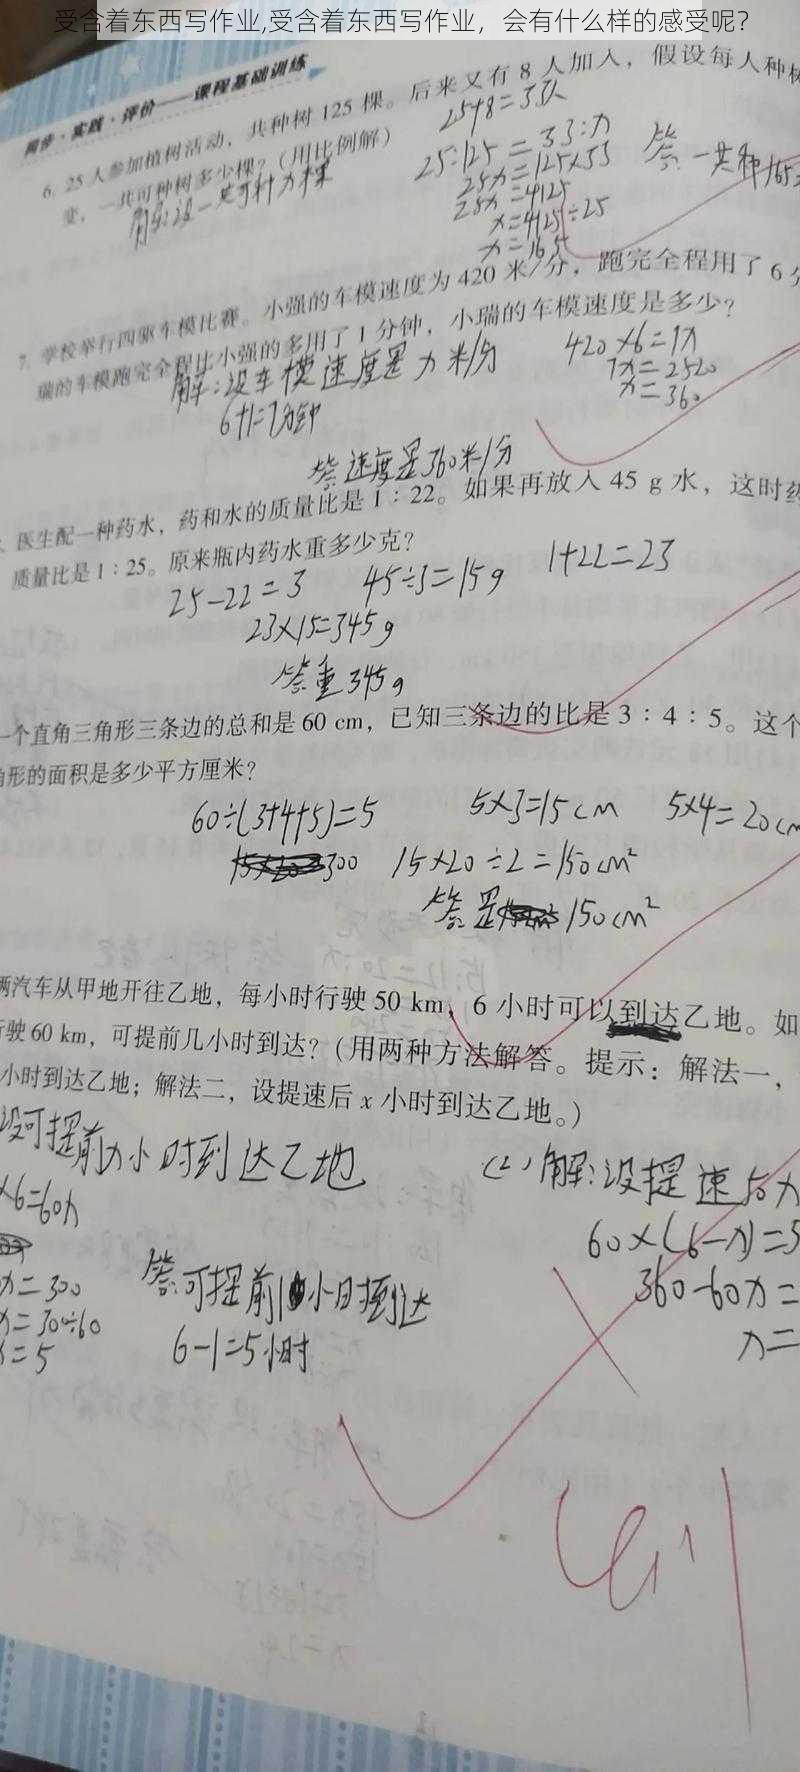 受含着东西写作业,受含着东西写作业，会有什么样的感受呢？
同步·实践·评价——课程基础训练
6. 25人参加植树活动，共种树125棵。后来又有8人加入，假设每人种树
变，一共可种树多少棵？(用比例解)
25+8=33人
解:设一共可种x棵
25:125=33:x
25x=125×33
25x=4125
x=4125÷25
x=165
答:一共种165
7. 学校举行四驱车模比赛。小强的车模速度为420米/分，跑完全程用了6分
瑞的车模跑完全程比小强的多用了1分钟，小瑞的车模速度是多少？
解:设车模速度是x米/分
6+1=7分钟
420×6=7x
7x=2520
x=360
答速度是360米/分
医生配一种药水，药和水的质量比是1∶22。如果再放入45 g水，这时药
质量比是1∶25。原来瓶内药水重多少克？
25-22=3 45÷3=15g 1+22=23
23×15=345g
答重345g
一个直角三角形三条边的总和是60 cm，已知三条边的比是3∶4∶5。这个
角形的面积是多少平方厘米？
60÷(3+4+5)=5 5×3=15cm 5×4=20cm
300 15×20÷2=150cm²
答是150cm²
辆汽车从甲地开往乙地，每小时行驶50 km，6小时可以到达乙地。如
行驶60 km，可提前几小时到达？(用两种方法解答。提示：解法一，
小时到达乙地；解法二，设提速后x小时到达乙地。)
设可提前x小时到达乙地
×6=60x
x=300
x=30÷60
x=5
答:可提前1小时到达
6-1=5小时
(2)解:设提速后x
60×(6-x)=5
360-60x=
x=